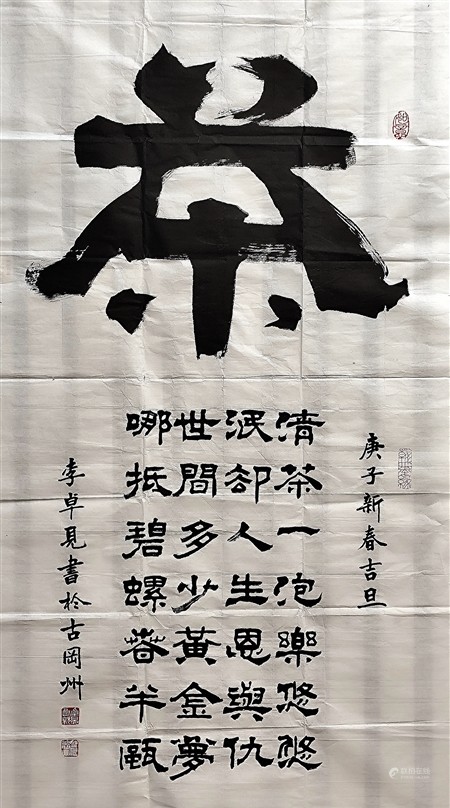 茶
庚子新春吉旦
清茶一泡樂悠悠
泯却人生恩與仇
世間多少黃金夢
哪抵碧螺春半甌
李卓見書於古岡州